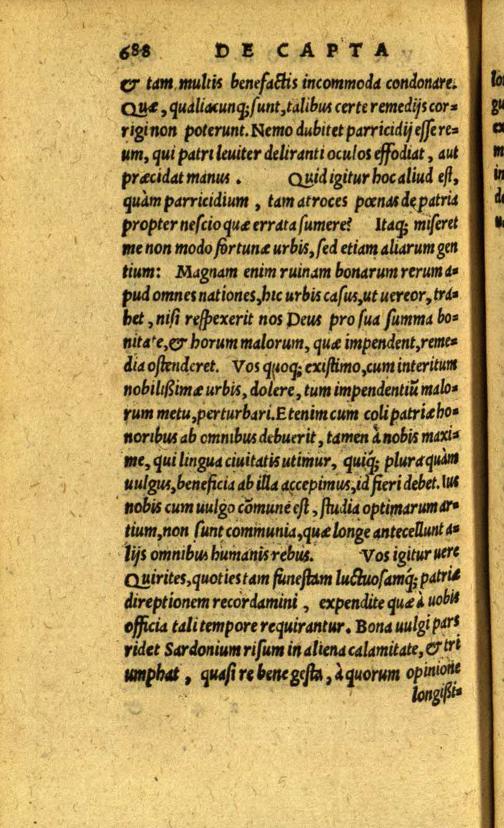 688 DE CAPTA
& tam multis benefactis incommoda condonare.
Quæ, qualiacunq; sunt, talibus certe remedijs cor-
rigi non poterunt. Nemo dubitet parricidij esse re-
um, qui patri leuiter deliranti oculos effodiat, aut
præcidat manus. Quid igitur hoc aliud est,
quàm parricidium, tam atroces pœnas de patria
propter nescio quæ errata sumere? Itaq; miseret
me non modo fortunæ urbis, sed etiam aliarum gen
tium: Magnam enim ruinam bonarum rerum a-
pud omnes nationes, hic urbis casus, ut uereor, tra-
het, nisi respexerit nos Deus pro sua summa bo-
nitate, & horum malorum, quæ impendent, reme-
dia ostenderet. Vos quoq; existimo, cum interitum
nobilißimæ urbis, dolere, tum impendentiū malo-
rum metu, perturbari. Etenim cum coli patriæ ho-
noribus ab omnibus debuerit, tamen à nobis maxi-
me, qui lingua ciuitatis utimur, quiq́; plura quàm
uulgus, beneficia ab illa accepimus, id fieri debet. Ius
nobis cum uulgo cōmune est, studia optimarum ar-
tium, non sunt communia, quæ longe antecellunt a-
lijs omnibus humanis rebus. Vos igitur uere
Quirites, quoties tam funestam luctuosamq́; patriæ
direptionem recordamini, expendite quæ à uobis
officia tali tempore requirantur. Bona uulgi pars
ridet Sardonium risum in aliena calamitate, & tri
umphat, quasi re bene gesta, à quorum opinione
longißi-